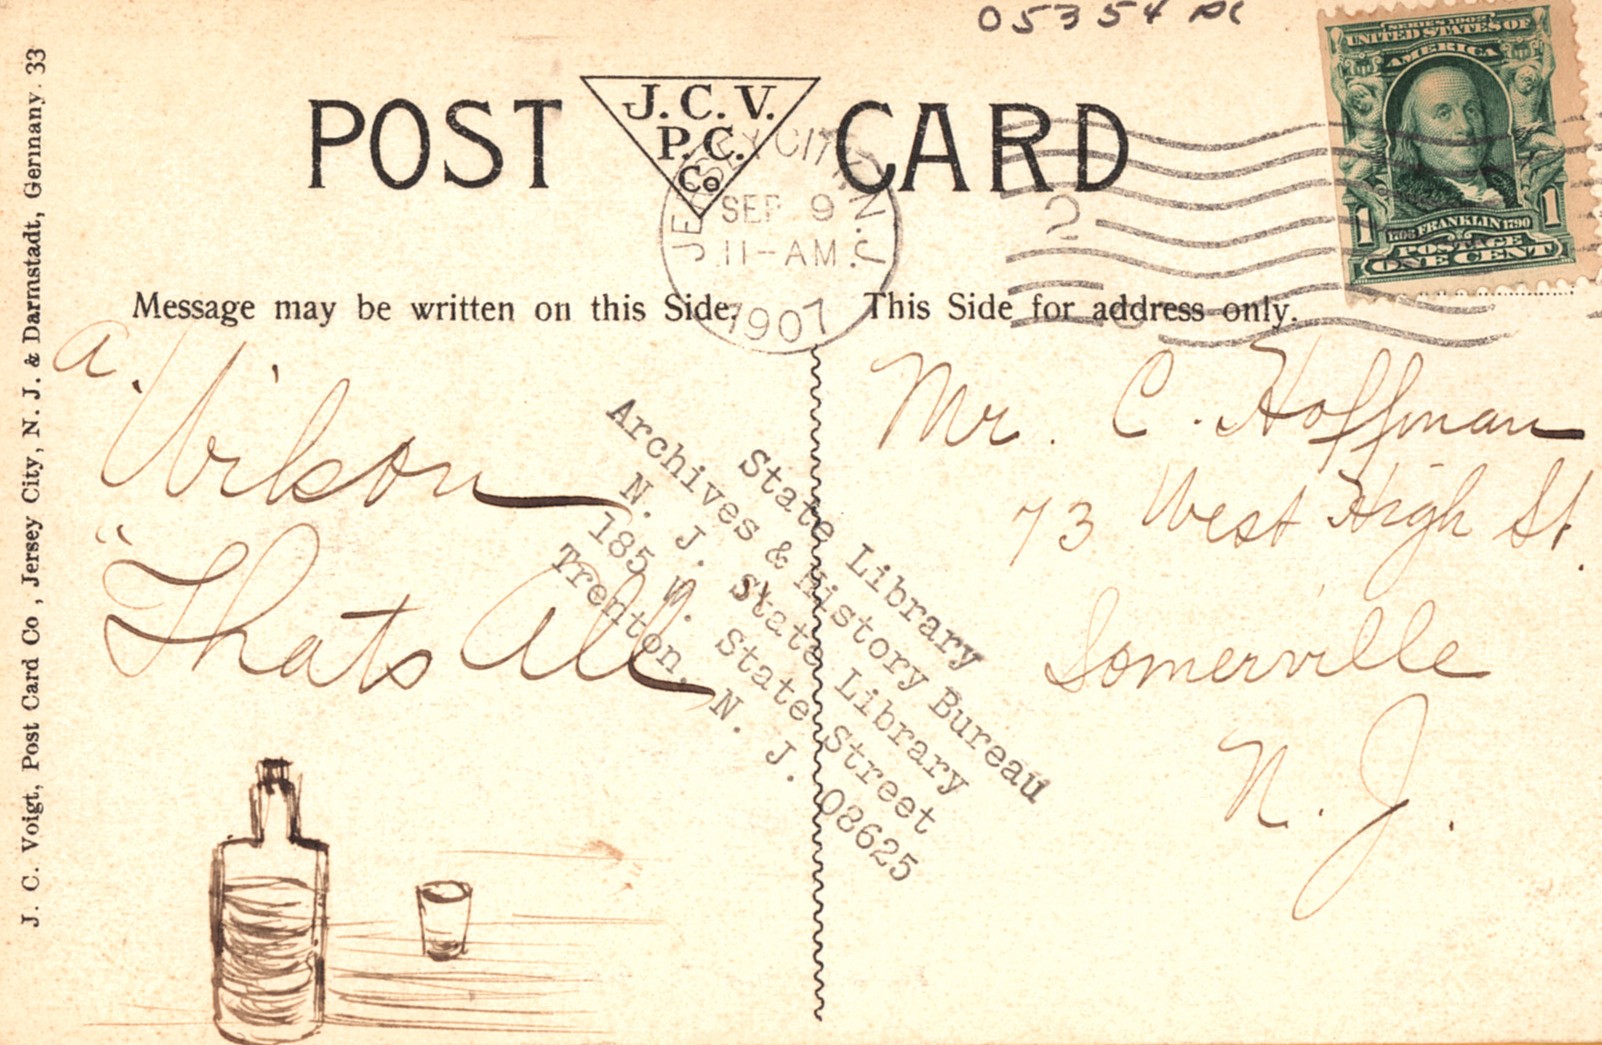 05354 pc
POST CARD
J. C. V.
P. C.
Co
JERSEY CITY, N.J.
SEP 9
11-AM
1907
2
SERIES 1902
UNITED STATES OF
AMERICA
1706 FRANKLIN 1790
POSTAGE
1 ONE CENT 1
Message may be written on this Side.
This Side for address only.
a. Wilson
"Thats All"
Mr. C. Hoffman
73 West High St.
Somerville
N. J.
State Library
Archives & History Bureau
N. J. State Library
185 W. State Street
Trenton, N. J. 08625
J. C. Voigt, Post Card Co, Jersey City, N. J. & Darmstadt, Germany. 33